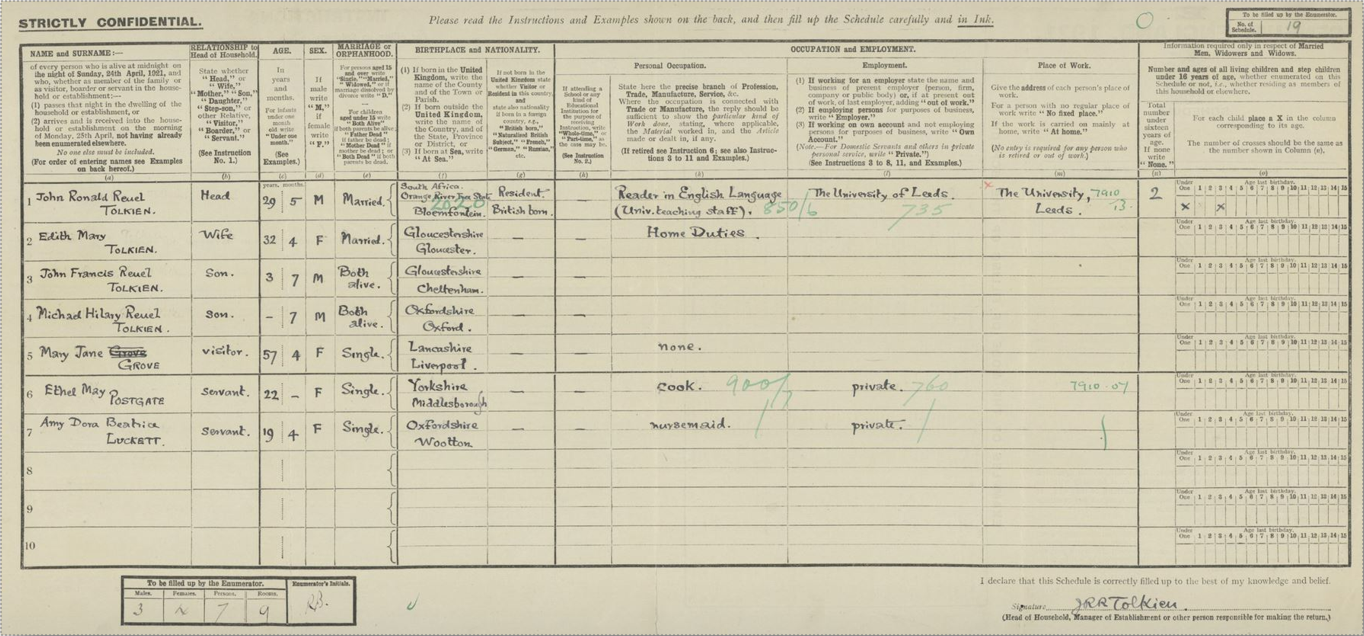 STRICTLY CONFIDENTIAL.
Please read the Instructions and Examples shown on the back, and then fill up the Schedule carefully and in Ink.
To be filled up by the Enumerator.
No. of Schedule. 19
NAME and SURNAME:—
of every person who is alive at midnight on
the night of Sunday, 24th April, 1921, and
who, whether as member of the family or
as visitor, boarder or servant in the house-
hold or establishment:—
(1) passes that night in the dwelling of the
household or establishment, or
(2) arrives and is received into the house-
hold or establishment on the morning
of Monday, 25th April, not having already
been enumerated elsewhere.
No one else must be included.
(For order of entering names see Examples
on back hereof.)
(a)
RELATIONSHIP to
Head of Household.
State whether
"Head," or
"Wife,"
"Mother," "Son,"
"Daughter,"
"Step-son," or
other Relative,
"Visitor,"
"Boarder," or
"Servant."
(See Instruction
No. 1.)
(b)
AGE.
In
years
and
months.
(See
Examples.)
(c)
SEX.
If
male
write
"M."
If
female
write
"F."
(d)
MARRIAGE or
ORPHANHOOD.
(e)
BIRTHPLACE and NATIONALITY.
(1) If born in the United
Kingdom, write the
name of the County
and of the Town or
Parish.
(2) If born outside the
United Kingdom,
write the name of
the Country, and of
the State, Province
or District, or
(3) If born at Sea, write
"At Sea."
(f)
(g)
(See Instruction No. 2.)
(h)
OCCUPATION and EMPLOYMENT.
Personal Occupation.
State here the precise branch of Profession,
Trade, Manufacture, Service, &c.
Where the occupation is connected with
Trade or Manufacture, the reply should be
sufficient to show the particular kind of
Work done, stating, where applicable,
the Material worked in, and the Article
made or dealt in, if any.
(If retired see Instruction 6; see also Instruc-
tions 3 to 11 and Examples.)
(k)
Employment.
(1) If working for an employer state the name and
business of present employer (person, firm,
company or public body) or, if at present out
of work, of last employer, adding "out of work."
(2) If employing persons for purposes of business,
write "Employer."
(3) If working on own account and not employing
persons for purposes of business, write "Own
Account."
(Note.—For Domestic Servants and others in private
personal service, write "Private.")
(See Instructions 3 to 8, 11, and Examples.)
(l)
Place of Work.
Give the address of each person's place of
work.
For a person with no regular place of
work write "No fixed place."
If the work is carried on mainly at
home, write "At home."
(No entry is required for any person who
is retired or out of work.)
(m)
Information required only in respect of Married
Men, Widowers and Widows.
Number and ages of all living children and step children
under 16 years of age, whether enumerated on this
Schedule or not, i.e., whether residing as members of
this household or elsewhere.
Total
number
under
sixteen
years of
age.
If none
write
"None."
(n)
For each child place a X in the column
corresponding to its age.
The number of crosses should be the same as
the number shown in Column (n).
(o)
1 John Ronald Reuel TOLKIEN. Head 29 5 M Married. South Africa. Orange River Free State Bloemfontein. Resident British born. — Reader in English Language (Univ. teaching staff). 850/6 The University of Leeds 735 The University, Leeds. 7910 13 2 X X
2 Edith Mary TOLKIEN. Wife 32 4 F Married. Gloucestershire Gloucester. — — Home Duties.
3 John Francis Reuel TOLKIEN. Son. 3 7 M Both alive. Gloucestershire Cheltenham. — —
4 Michael Hilary Reuel TOLKIEN. Son. – 7 M Both alive. Oxfordshire Oxford. — —
5 Mary Jane Grove GROVE visitor. 57 4 F Single. Lancashire Liverpool. — — none.
6 Ethel May POSTGATE servant. 22 – F Single. Yorkshire Middlesborough — — cook. 900/ private. 760 7910.07
7 Amy Dora Beatrice LUCKETT. servant. 19 4 F Single. Oxfordshire Wootton — — nursemaid. private.
8
9
10
To be filled up by the Enumerator.
Males. Females. Persons. Rooms.
3 4 7 9
Enumerator's Initials.
RB.
I declare that this Schedule is correctly filled up to the best of my knowledge and belief.
Signature JRRTolkien.
(Head of Household, Manager of Establishment or other person responsible for making the return,)